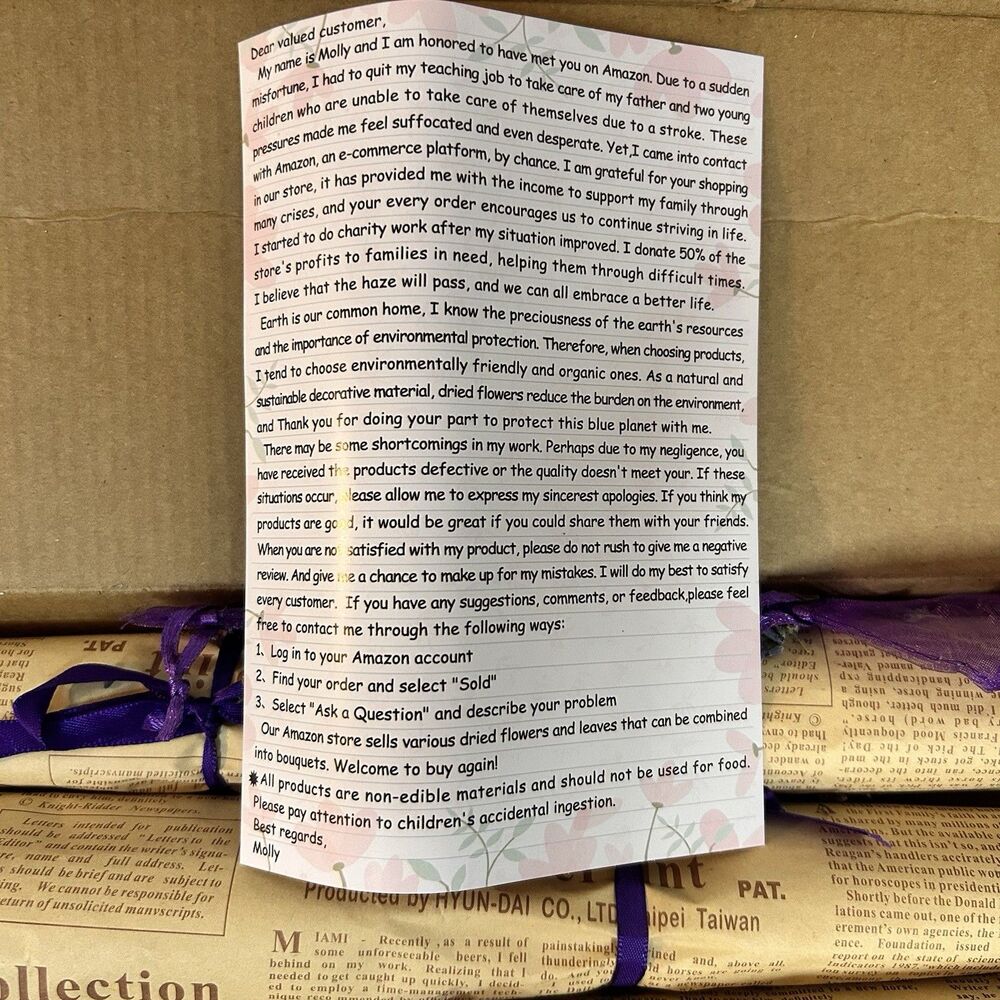 Dear valued customer,
My name is Molly and I am honored to have met you on Amazon. Due to a sudden
misfortune, I had to quit my teaching job to take care of my father and two young
children who are unable to take care of themselves due to a stroke. These
pressures made me feel suffocated and even desperate. Yet,I came into contact
with Amazon, an e-commerce platform, by chance. I am grateful for your shopping
in our store, it has provided me with the income to support my family through
many crises, and your every order encourages us to continue striving in life.
I started to do charity work after my situation improved. I donate 50% of the
store's profits to families in need, helping them through difficult times.
I believe that the haze will pass, and we can all embrace a better life.
Earth is our common home, I know the preciousness of the earth's resources
and the importance of environmental protection. Therefore, when choosing products,
I tend to choose environmentally friendly and organic ones. As a natural and
sustainable decorative material, dried flowers reduce the burden on the environment,
and Thank you for doing your part to protect this blue planet with me.
There may be some shortcomings in my work. Perhaps due to my negligence, you
have received the products defective or the quality doesn't meet your. If these
situations occur, please allow me to express my sincerest apologies. If you think my
products are good, it would be great if you could share them with your friends.
When you are not satisfied with my product, please do not rush to give me a negative
review. And give me a chance to make up for my mistakes. I will do my best to satisfy
every customer. If you have any suggestions, comments, or feedback,please feel
free to contact me through the following ways:
1、Log in to your Amazon account
2、Find your order and select "Sold"
3、Select "Ask a Question" and describe your problem
Our Amazon store sells various dried flowers and leaves that can be combined
into bouquets. Welcome to buy again!
✸All products are non-edible materials and should not be used for food.
Please pay attention to children's accidental ingestion.
Best regards,
Molly
PAT.
© Knight-Ridder Newspapers.
Letters intended for publication
should be addressed
and contain the writer's signa-
name and full address. Let-
should be brief and are subject to
We cannot be responsible for
return of unsolicited manvscripts.
ollection
PAT.
Producted by HYUN-DAI CO., LTD Taipei Taiwan
MIAMI - Recently ,as a result of
some unforeseeable beers, I fell
behind on my work. Realizing that I
needed to get caught up quickly, I decid-
ed to employ a time-management tech-
But the available
suggests that this isn't so, and
Reagan's handlers accirately
that the American public wo
for horoscopes in presidenti
Shortly before the Donald
lations came out, one of the
erement's own agencies, the
ence. Foundation, issued
report on the state of science